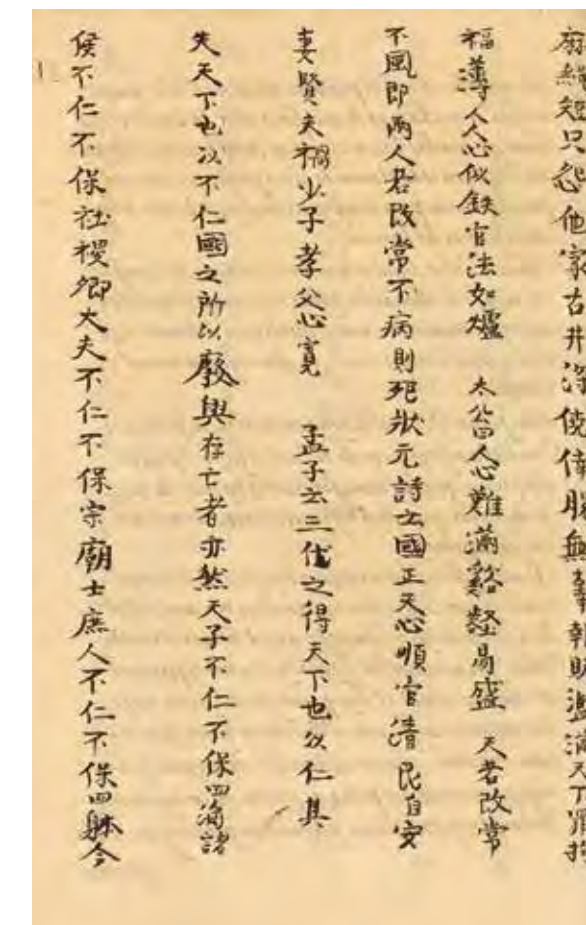 繩短只怨他家古井深僥倖脫無辜報賍濫滿天下罪拘
福薄人人心似鉄官法如爐 太公曰人心難滿谿壑易盛 天若改常
不風即雨人若改常不病則死狀元詩云國正天心順官清民自安
妻賢夫禍少子孝父心寬 孟子云三代之得天下也以仁其
失天下也以不仁國之所以廢興存亡者亦然天子不仁不保四海諸
侯不仁不保社稷卿大夫不仁不保宗廟士庶人不仁不保四躰今